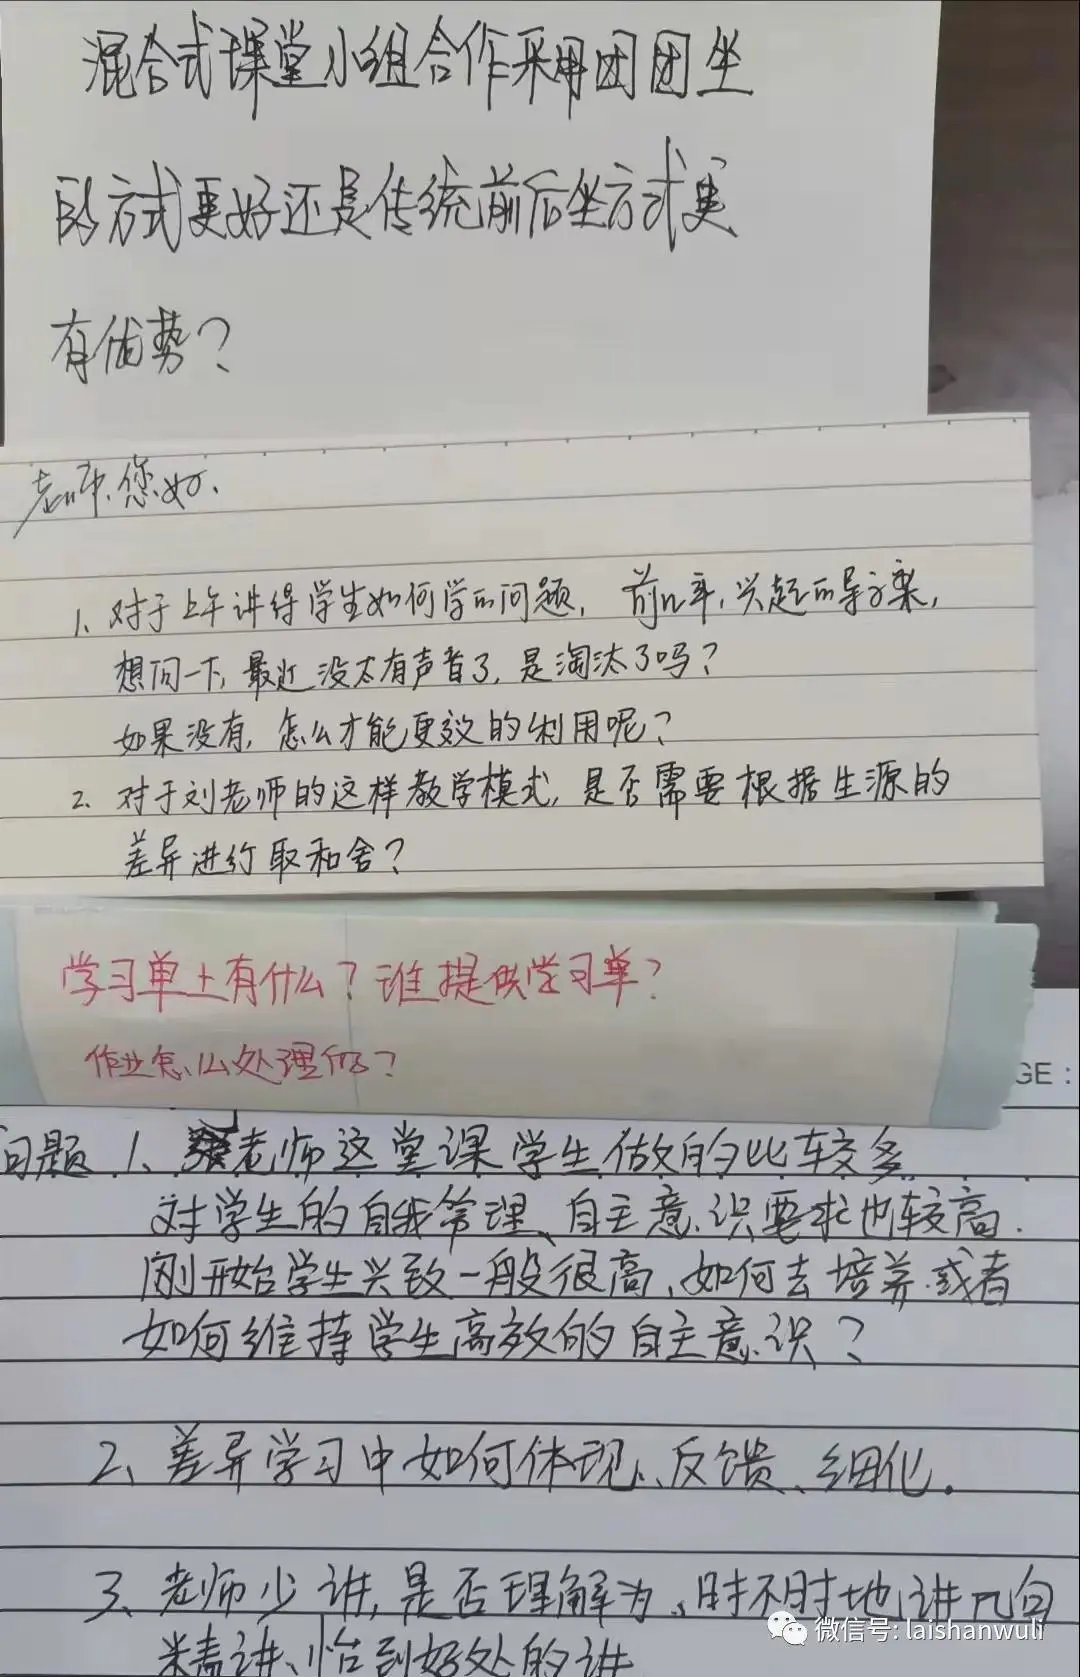 混合式课堂小组合作采用团团坐
的方式更好还是传统前后坐方式更
有优势？
老师，您好，
1、对于上午讲得学生如何学的问题，前几年，兴起的导学案，
想问一下，最近没太有声音了，是淘汰了吗？
如果没有，怎么才能更效的利用呢？
2、对于刘老师的这样教学模式，是否需要根据生源的
差异进行取和舍？
学习单上有什么？谁提供学习单？
作业怎么处理的？
GE：
问题 1、老师这堂课学生做的比较多
对学生的自我管理、自主意识要求也较高．
刚开始学生兴致一般很高，如何去培养或者
如何维持学生高效的自主意识？
2、差异学习中如何体现、反馈、细化．
3、老师少讲，是否理解为、时不时地讲几句
精讲、恰到好处的讲
微信号: laishanwuli